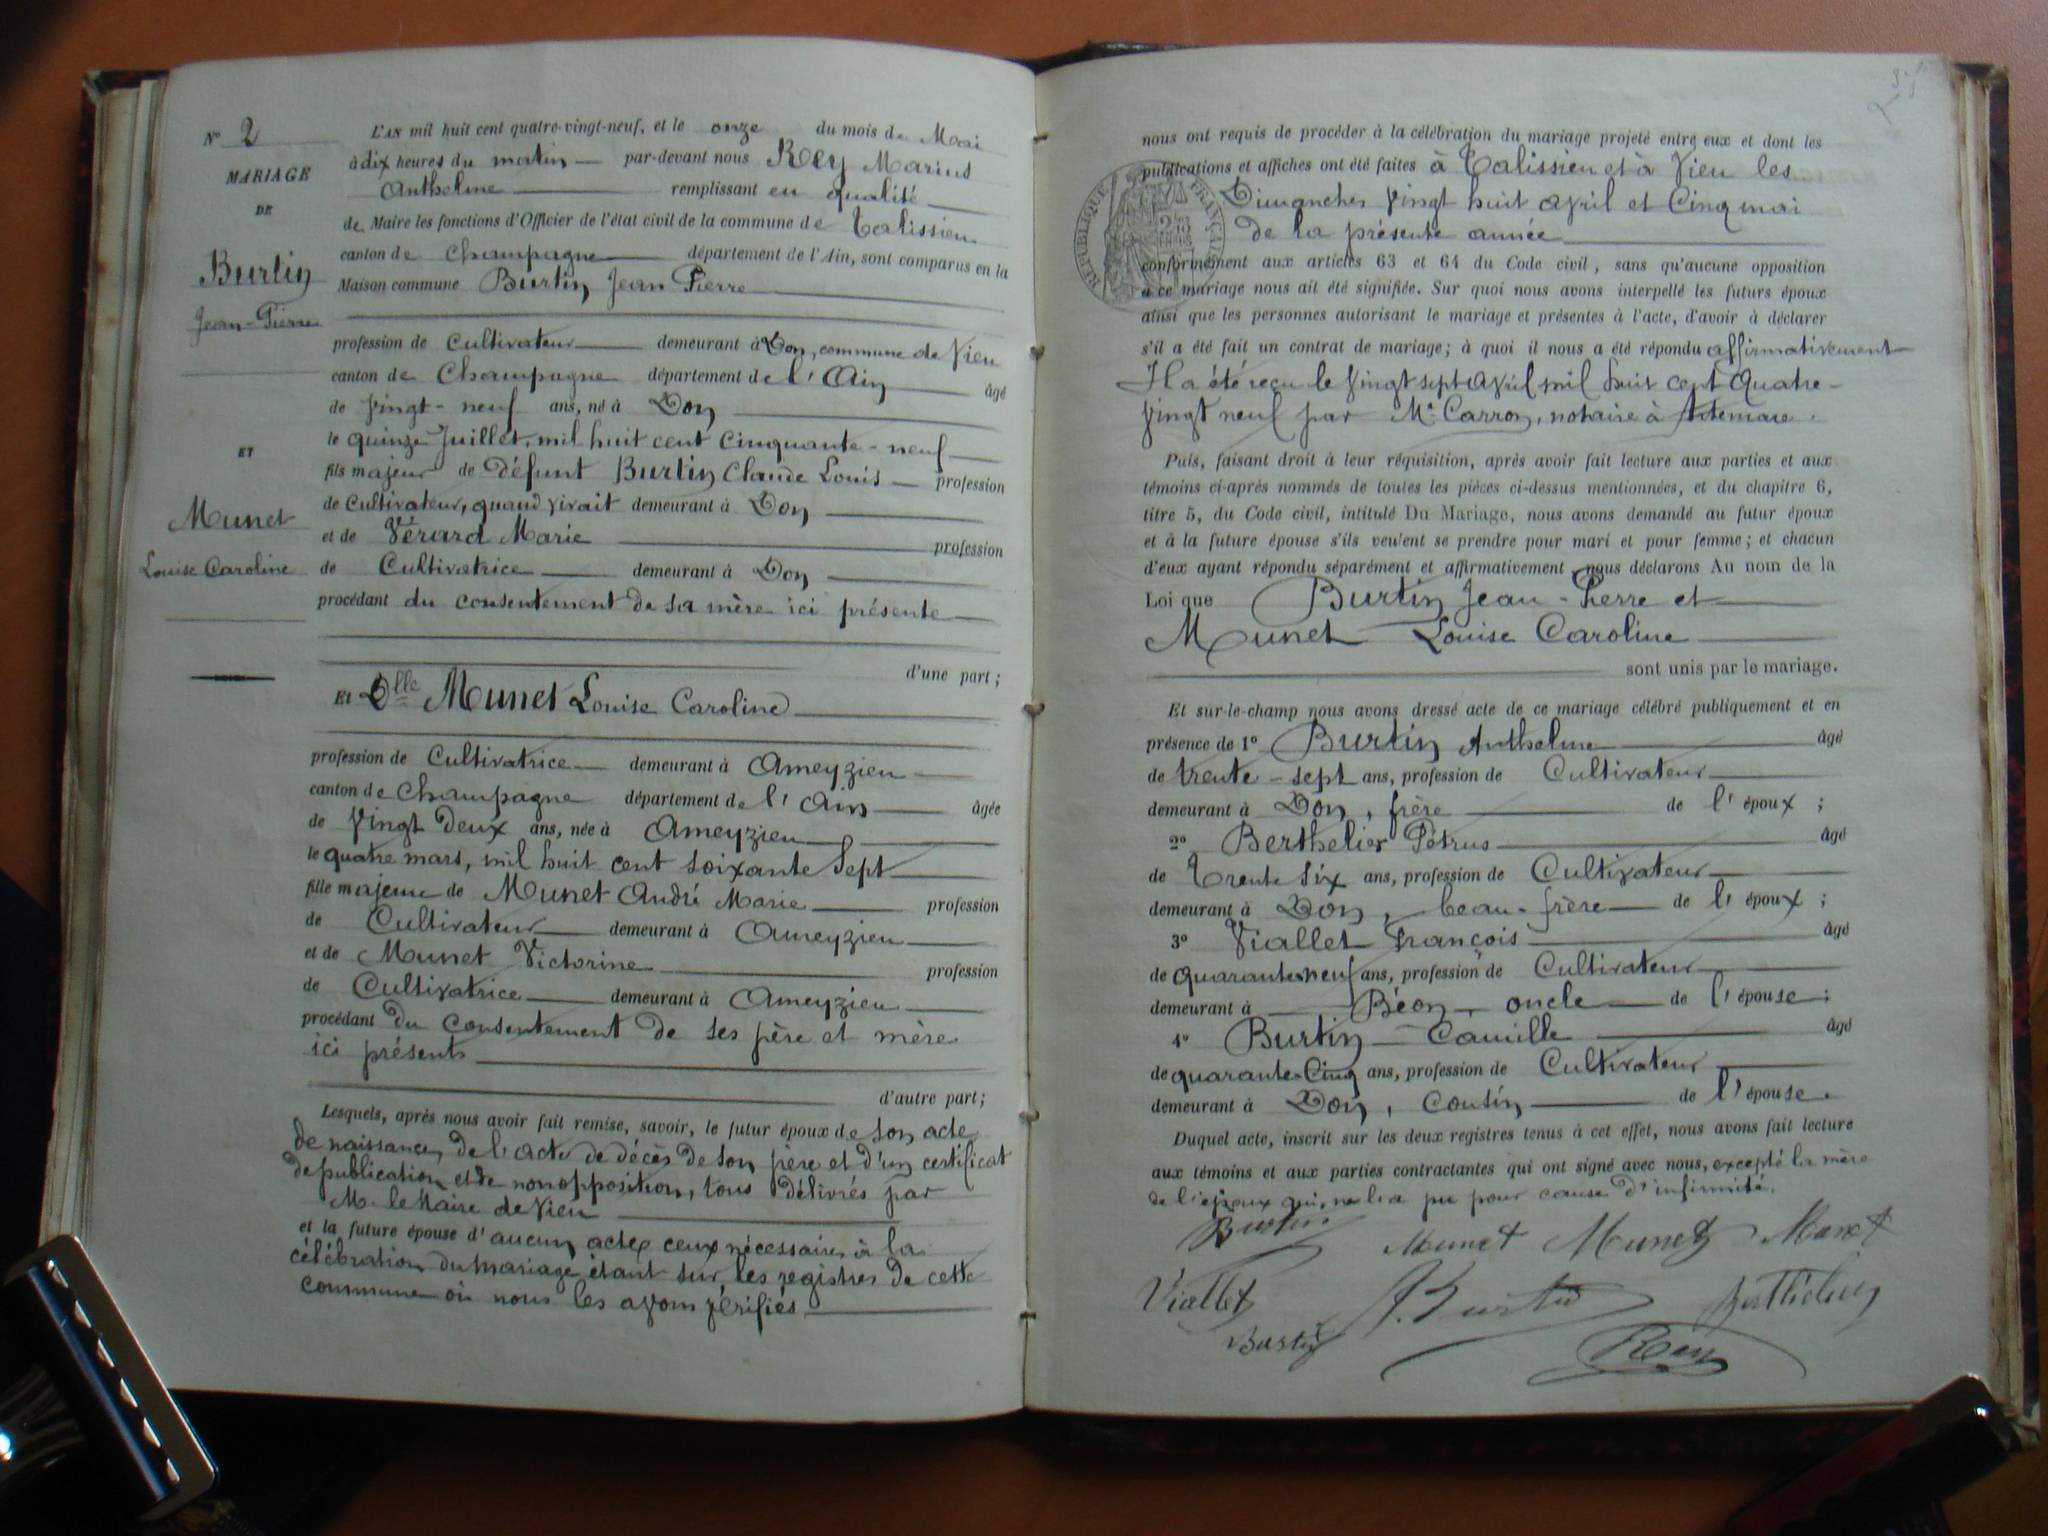 N° 2
MARIAGE
DE
Burtin
Jean-Pierre
ET
Munet
Louise Caroline
L'AN mil huit cent quatre-vingt-neuf, et le onze du mois de Mai
à dix heures du matin par-devant nous Rey Marius
Anthelme remplissant en qualité
de Maire les fonctions d'Officier de l'état civil de la commune de Talissieu
canton de Champagne département de l'Ain, sont comparus en la
Maison commune Burtin Jean Pierre
profession de Cultivateur demeurant à Don, commune de Vieu
canton de Champagne département de l'Ain âgé
de Vingt-neuf ans, né à Don
le quinze Juillet, mil huit cent Cinquante-neuf
fils majeur de défunt Burtin Claude Louis profession
de Cultivateur, quand vivait demeurant à Don
et de Vérard Marie profession
de Cultivatrice demeurant à Don
procédant du consentement de sa mère ici présente
d'une part;
Et Dlle Munet Louise Caroline
profession de Cultivatrice demeurant à Ameyzieu
canton de Champagne département de l'Ain âgée
de Vingt deux ans, née à Ameyzieu
le quatre mars, mil huit cent soixante Sept
fille majeure de Munet André Marie profession
de Cultivateur demeurant à Ameyzieu
et de Munet Victorine profession
de Cultivatrice demeurant à Ameyzieu
procédant du consentement de ses père et mère
ici présents
d'autre part;
Lesquels, après nous avoir fait remise, savoir, le futur époux de son acte
de naissance, de l'acte de décès de son père et d'un certificat
de publication et de non opposition, tous délivrés par
M. le Maire de Vieu
et la future épouse d'aucun acte, ceux nécessaires à la
célébration du mariage étant sur les registres de cette
commune où nous les avons vérifiés
nous ont requis de procéder à la célébration du mariage projeté entre eux et dont les
publications et affiches ont été faites à Talissieu et à Vieu les
Dimanches Vingt huit avril et Cinq mai
de la présente année
RÉPUBLIQUE FRANÇAISE
conformément aux articles 63 et 64 du Code civil, sans qu'aucune opposition
à ce mariage nous ait été signifiée. Sur quoi nous avons interpellé les futurs époux
ainsi que les personnes autorisant le mariage et présentes à l'acte, d'avoir à déclarer
s'il a été fait un contrat de mariage; à quoi il nous a été répondu affirmativement
Il a été reçu le Vingt sept avril mil huit cent quatre-
vingt neuf par Me Carron, notaire à Artemare.
Puis, faisant droit à leur réquisition, après avoir fait lecture aux parties et aux
témoins ci-après nommés de toutes les pièces ci-dessus mentionnées, et du chapitre 6,
titre 5, du Code civil, intitulé Du Mariage, nous avons demandé au futur époux
et à la future épouse s'ils veulent se prendre pour mari et pour femme; et chacun
d'eux ayant répondu séparément et affirmativement, nous déclarons Au nom de la
Loi que Burtin Jean-Pierre et
Munet Louise Caroline
sont unis par le mariage.
Et sur-le-champ nous avons dressé acte de ce mariage célébré publiquement et en
présence de 1° Burtin Anthelme âgé
de trente-sept ans, profession de Cultivateur
demeurant à Don, frère de l'époux;
2° Berthelier Pétrus âgé
de Trente Six ans, profession de Cultivateur
demeurant à Don, beau-frère de l'époux;
3° Viallet François âgé
de quarante neuf ans, profession de Cultivateur
demeurant à Béon, oncle de l'épouse;
4° Burtin Camille âgé
de quarante-Cinq ans, profession de Cultivateur
demeurant à Don, Cousin de l'épouse.
Duquel acte, inscrit sur les deux registres tenus à cet effet, nous avons fait lecture
aux témoins et aux parties contractantes qui ont signé avec nous, excepté la mère
de l'époux qui, ne l'a pu pour cause d'infirmité.
Burtin Munet Munet Munet
Viallet Burtin Berthelier
Burtin Rey